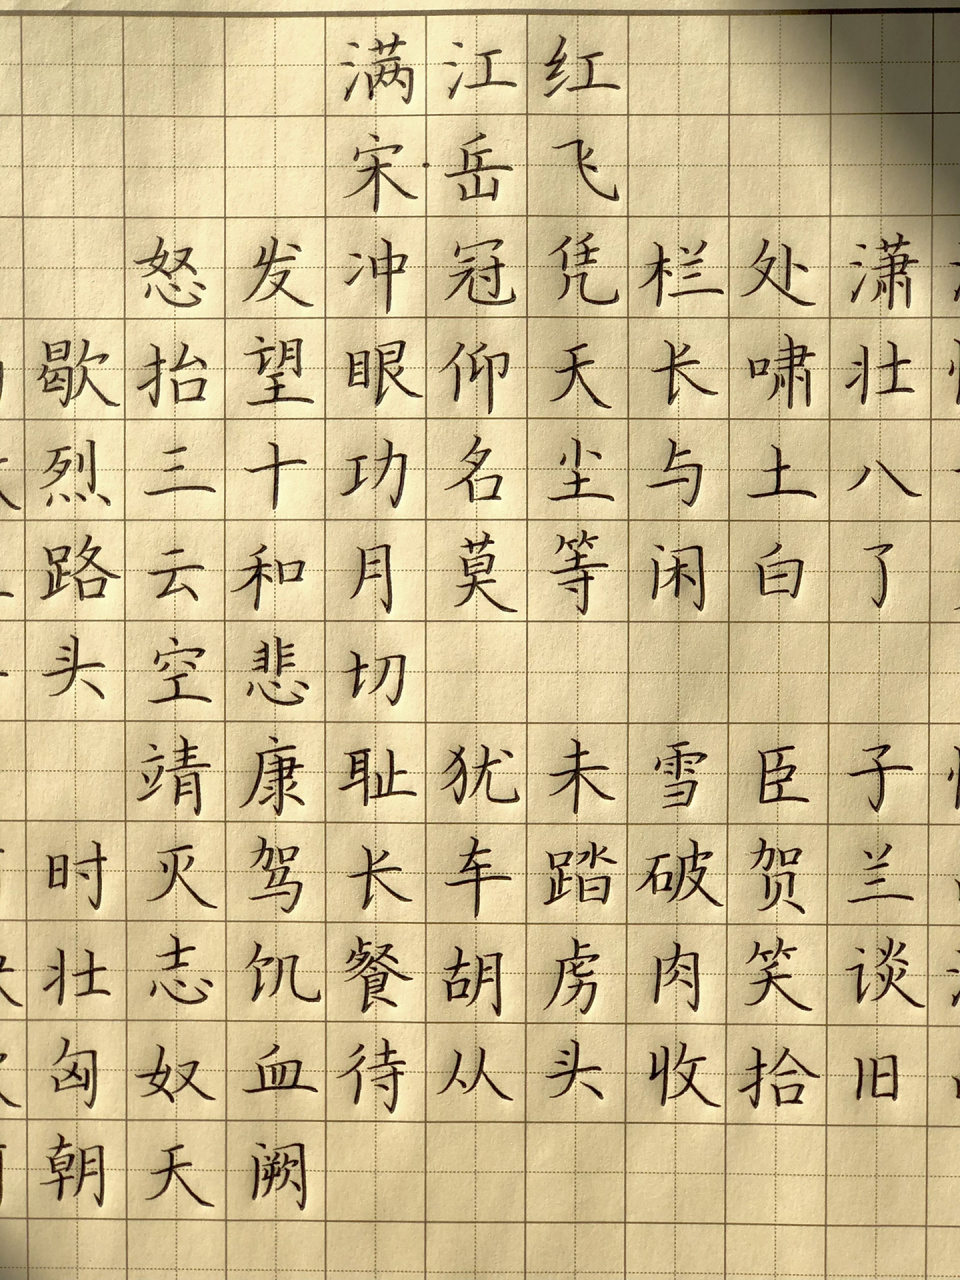 满江红
宋·岳飞
怒发冲冠凭栏处潇
歇抬望眼仰天长啸壮
烈三十功名尘与土八
路云和月莫等闲白了
头空悲切
靖康耻犹未雪臣子
时灭驾长车踏破贺兰
壮志饥餐胡虏肉笑谈
匈奴血待从头收拾旧
朝天阙